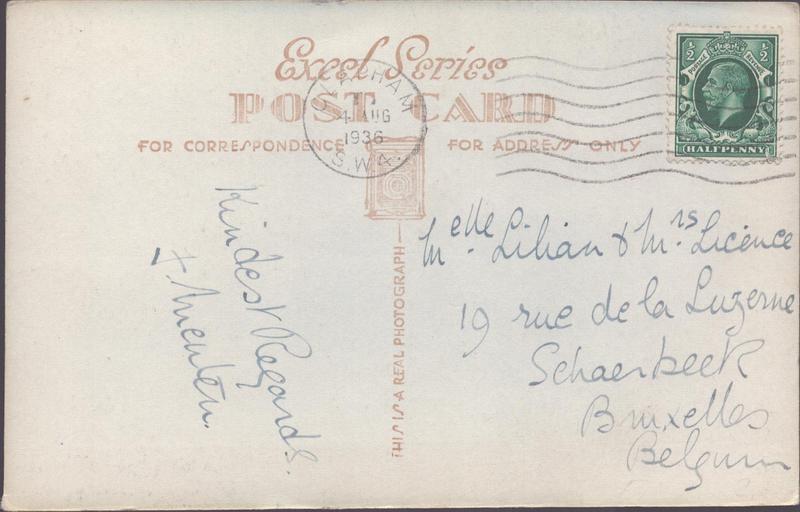 Excel Series
POST CARD
FOR CORRESPONDENCE
FOR ADDRESS ONLY
CLAPHAM
4 AUG
1936
S.W.4.
POSTAGE REVENUE
1/2 1/2
HALFPENNY
Kindest Regards.
THIS IS A REAL PHOTOGRAPH
Melle. Lilian & Mrs Licence
19 rue de la Luzerne
Schaerbeek
Bruxelles
Belgium